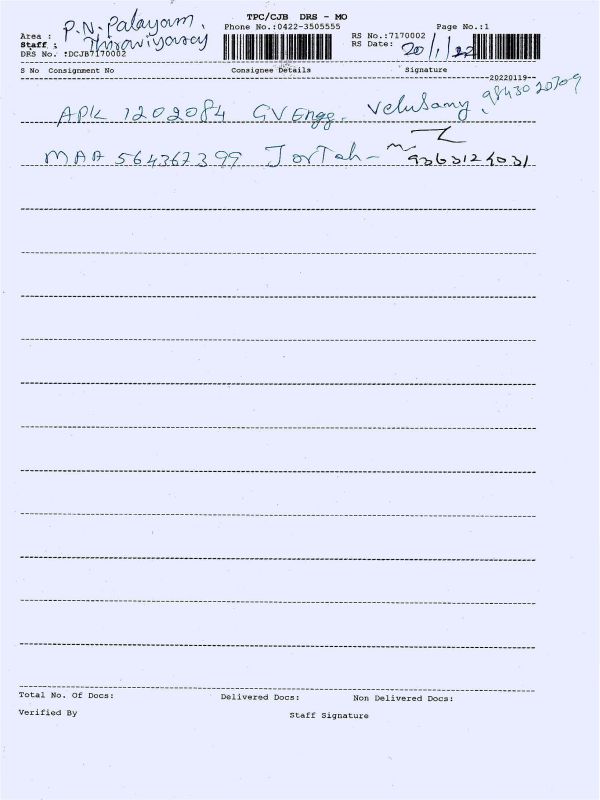 TPC/CJB DRS - MO
Area : P.N. Palayam. Phone No.:0422-3505555 Page No.:1
Staff :
RS No.:7170002
RS Date: 20/1/22
DRS No. :DCJB7170002
S No Consignment No Consignee Details Signature
--20220119--
APK 1202084 GVEngg. Velusamy 98430 20709
MAA 564367399
Total No. Of Docs: Delivered Docs: Non Delivered Docs:
Verified By Staff Signature